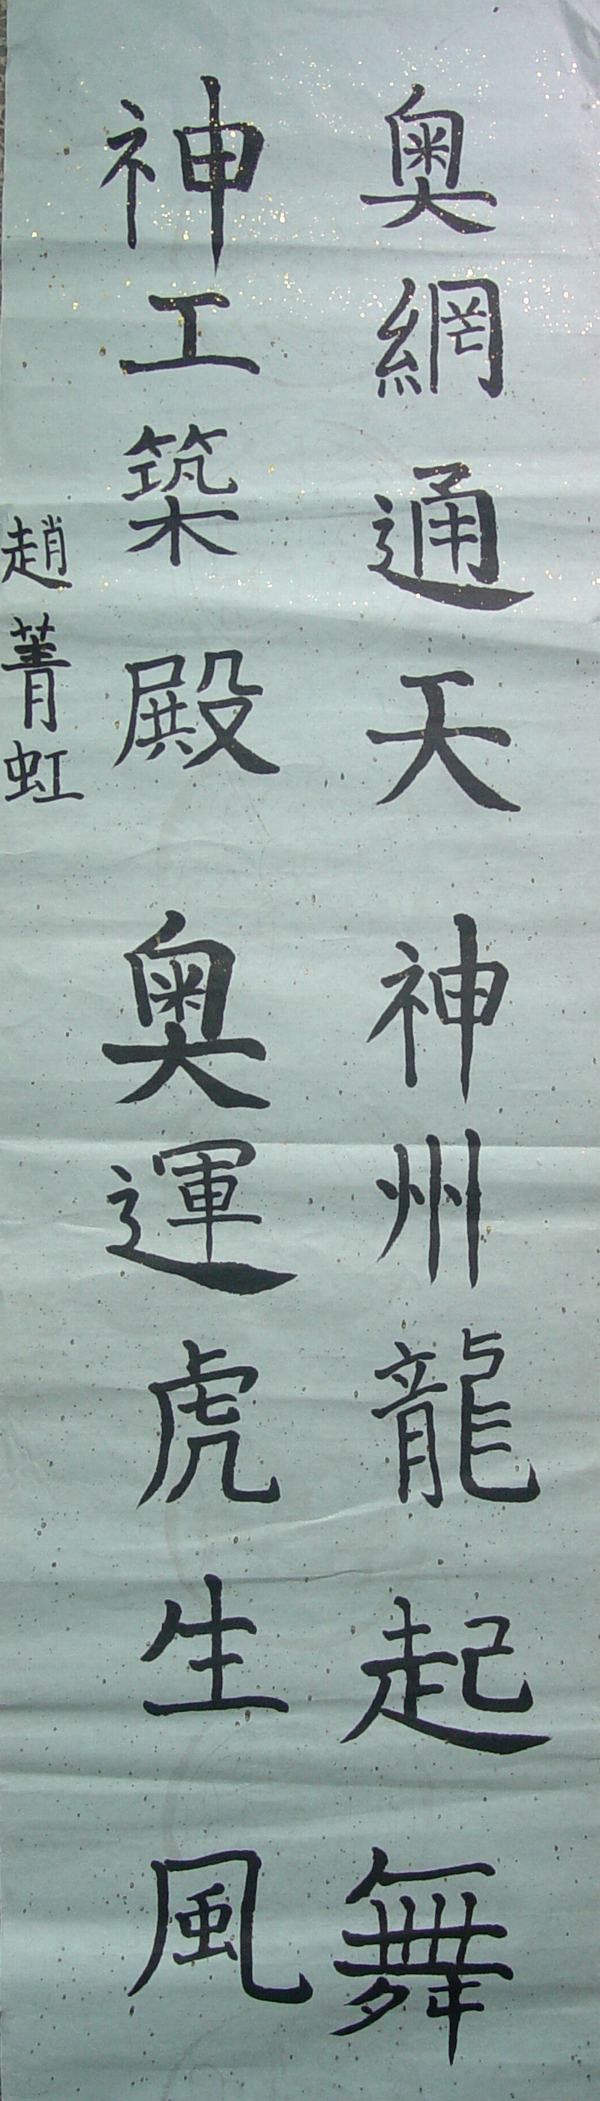 奧網通天神州龍起舞
神工築殿奧運虎生風
趙菁虹